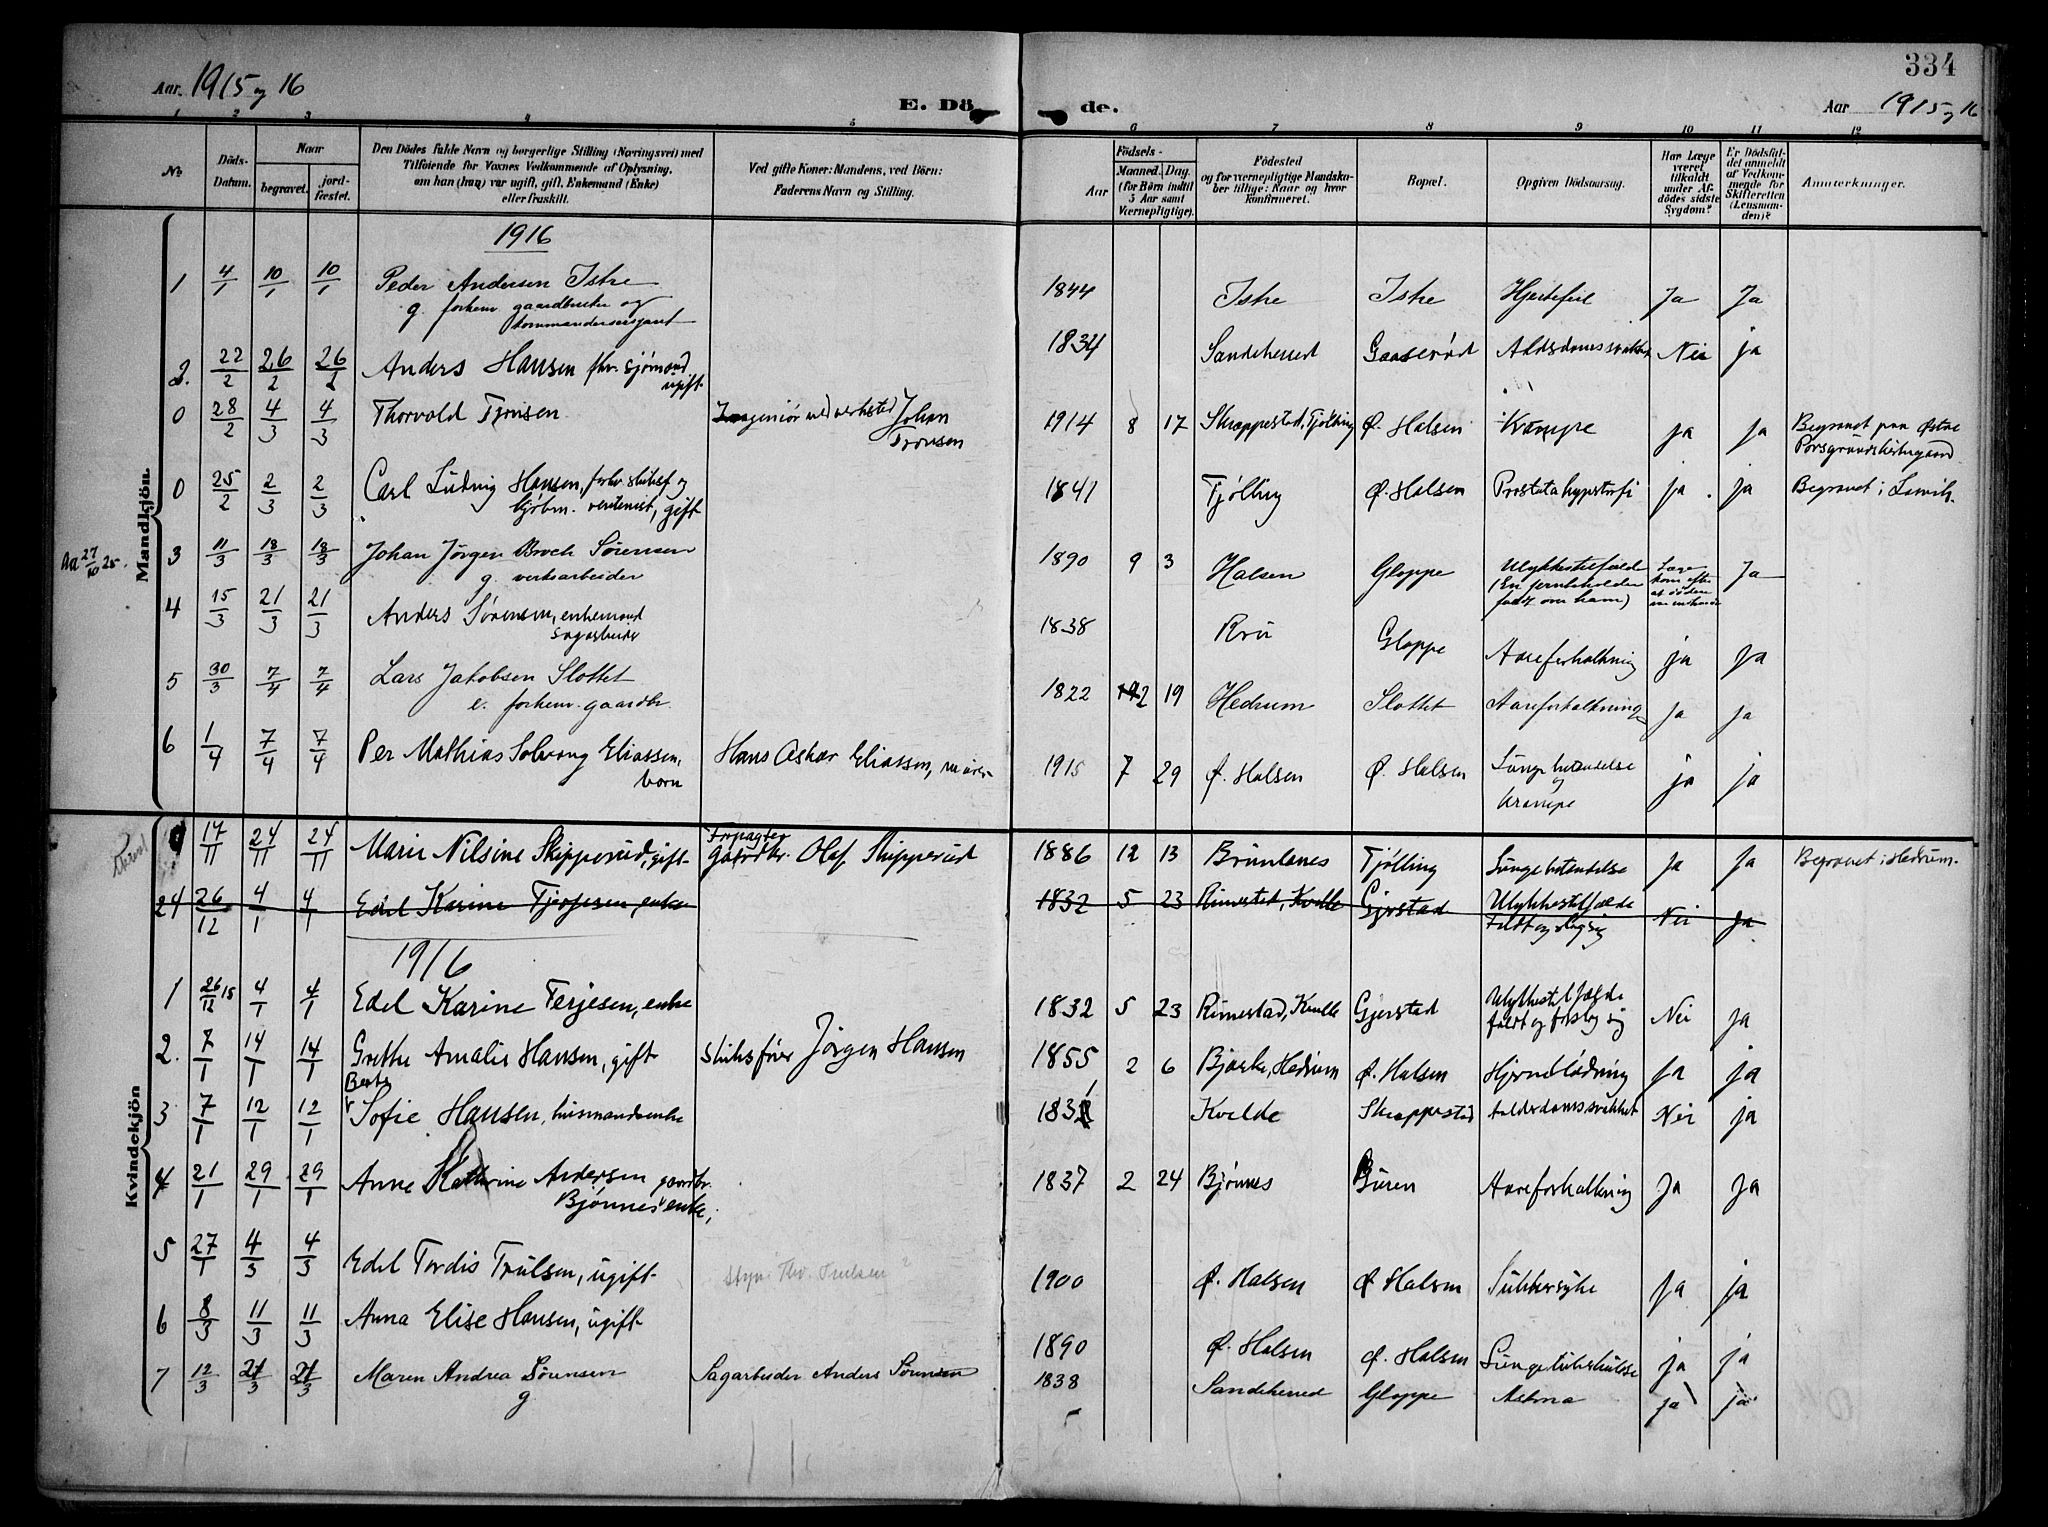 334
Aar. 1915 og 16
E. Dö de.
Aar 1915 og 16
1 2 3 4 5 6 7 8 9 10 11 12
No
Döds-Datum.
Naar
begravet.
jord-fæstet.
Den Dödes fulde Navn og borgerlige Stilling (Næringsvei) med
Tilföiende for Voxnes Vedkommende af Oplysning,
om han (hun) var ugift, gift, Enkemand (Enke)
eller fraskilt.
Ved gifte Koner: Mandens, ved Börn:
Faderens Navn og Stilling.
Födsels-
Aar
Maaned. Dag.
(for Börn indtil
5 Aar samt
Værnepligtige).
Födested
og for værnepligtige Mandska-
ber tillige: Naar og hvor
konfirmeret.
Bopæl.
Opgiven Dödsaarsag.
Har Læge
været
tilkaldt
under Af-
dödes sidste
Sygdom?
Er Dödsfal-
det anmeldt
af Vedkom-
mende for
Skifteretten
(Lensman-
den)?
Anmærkninger.
Mandkjön.
1916
1 4/1 10/1 10/1 Peder Andersen Istre 1844 Istre Istre Hjertefeil Ja Ja
g. forhenv gaardbruker og
kommandersersjant
2. 22/2 26/2 26/2 Anders Hansen fhv. sjømand ugift 1834 Sandeherred Gaaserød Alderdomssvakhet Nei ja
0 28/2 4/3 4/3 Thorvald Tronsen Ingeniør ved verksted Johan Tronsen 1914 8 17 Skreppestad, Tjölling Ø. Halsen Krampe ja ja Begravet paa Østre
Porsgrunds kirkegaard
0 25/2 2/3 2/3 Carl Ludvig Hansen, forhv skibsf og 1841 Tjølling Ø. Halsen Prostatahypertrofi ja. ja Begravet i Larvik.
kjøbm. gift
Aa 27/10 25.
3 11/3 18/3 18/3 Johan Jörgen Broch Sörensen 1890 9 3 Halsen Gloppe Ulykkestilfælde Ja
g. verksarbeider
4 15/3 21/3 21/3 Anders Sörensen, enkemand 1838 Gloppe Aareforkalkning ja ja
sagarbeider
5 30/3 7/4 7/4 Lars Jakobsen Slottet 1822 12 19 Hedrum Slottet Aareforkalkning ja ja
e. forhenv. gaardbr.
6 1/4 7/4 7/4 Per Mathias Solvang Eliassen, barn Hans Oskar Eliassen, murer 1915 7 29 Ø. Halsen Ø. Halsen Lungebetændelse
og
krampe ja ja
Kvindekjön
17/11 24/11 24/11 Marie Nilsine Skipperud, gift Forpagter
Gaardbr. Olaf Skipperud 1886 12 13 Brunlanes Tjølling Lungebetendelse Ja Ja Begravet i Hedrum.
24 26/12 4/1 4/1 Edel Karine Terjesen, enke 1832 5 23 Rimestad, Kvelle Gjerstad Ulykkestilfælde Nei Ja
1916
1 26/12 15 4/1 4/1 Edel Karine Terjesen, enke 1832 5 23 Rimestad, Kvelle Gjerstad Ulykkestilfælde
faldt og forslog sig Nei ja
2. 7/1 14/1 14/1 Grethe Amalie Hansen, gift skibsfører Jørgen Hansen 1855 2 6 Bjerke, Hedrum Ø. Halsen Hjerneblødning Ja ja
3 7/1 12/1 12/1 Berte
Sofie Hansen, husmandsenke Kvelde Skreppestad Alderdomssvakhet Nei ja
4 21/1 29/1 29/1 Anne Kathrine Andersen gaardbr.
Bjønnes enke, 1837 2 24 Bjønnes Buren Aareforkalkning Ja Ja
5 27/1 4/3 4/3 Edel Tordis Trulsen, ugift Styr. Thv. Trulsen ? 1900 Ø. Halsen Ø Halsen Sukkersyke Ja ja
6 8/3 11/3 11/3 Anna Elise Hansen, ugift 1890 Ø. Halsen Ø. Halsen Lungetuberkulose ja ja
7 12/3 21/3 21/3 Maren Andrea Sörensen Sagarbeider Anders Sörensen 1838 Sandeherred Gloppe Astma ja ja
g